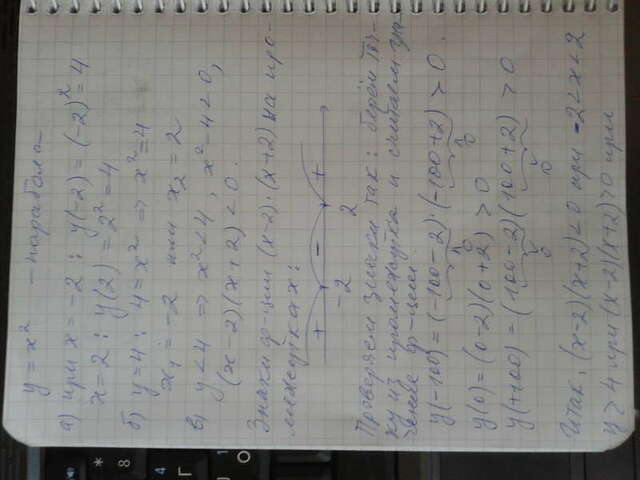 y = x² - парабола
а) при x = -2 : y(-2) = (-2)² = 4
x = 2 : y(2) = 2² = 4
б) y = 4 : 4 = x² ⇒ x² = 4
x₁ = -2 или x₂ = 2
в) y < 4 ⇒ x² < 4, x² - 4 < 0,
(x-2)(x+2) < 0.
Знаки ф-ции (x-2)·(x+2) на про-
межутках:
+ - +
-2 2
Проверяем значки так: берём точ-
ку из промежутка и считаем зна-
чение ф-ции
y(-100) = (-100-2)·(-100+2) > 0.
y(0) = (0-2)(0+2) > 0
y(+100) = (100-2)(100+2) > 0
Итак: (x-2)(x+2) < 0 при -2 < x < 2
y > 4 при (x-2)(x+2) > 0 при
*
8
4
Г
О